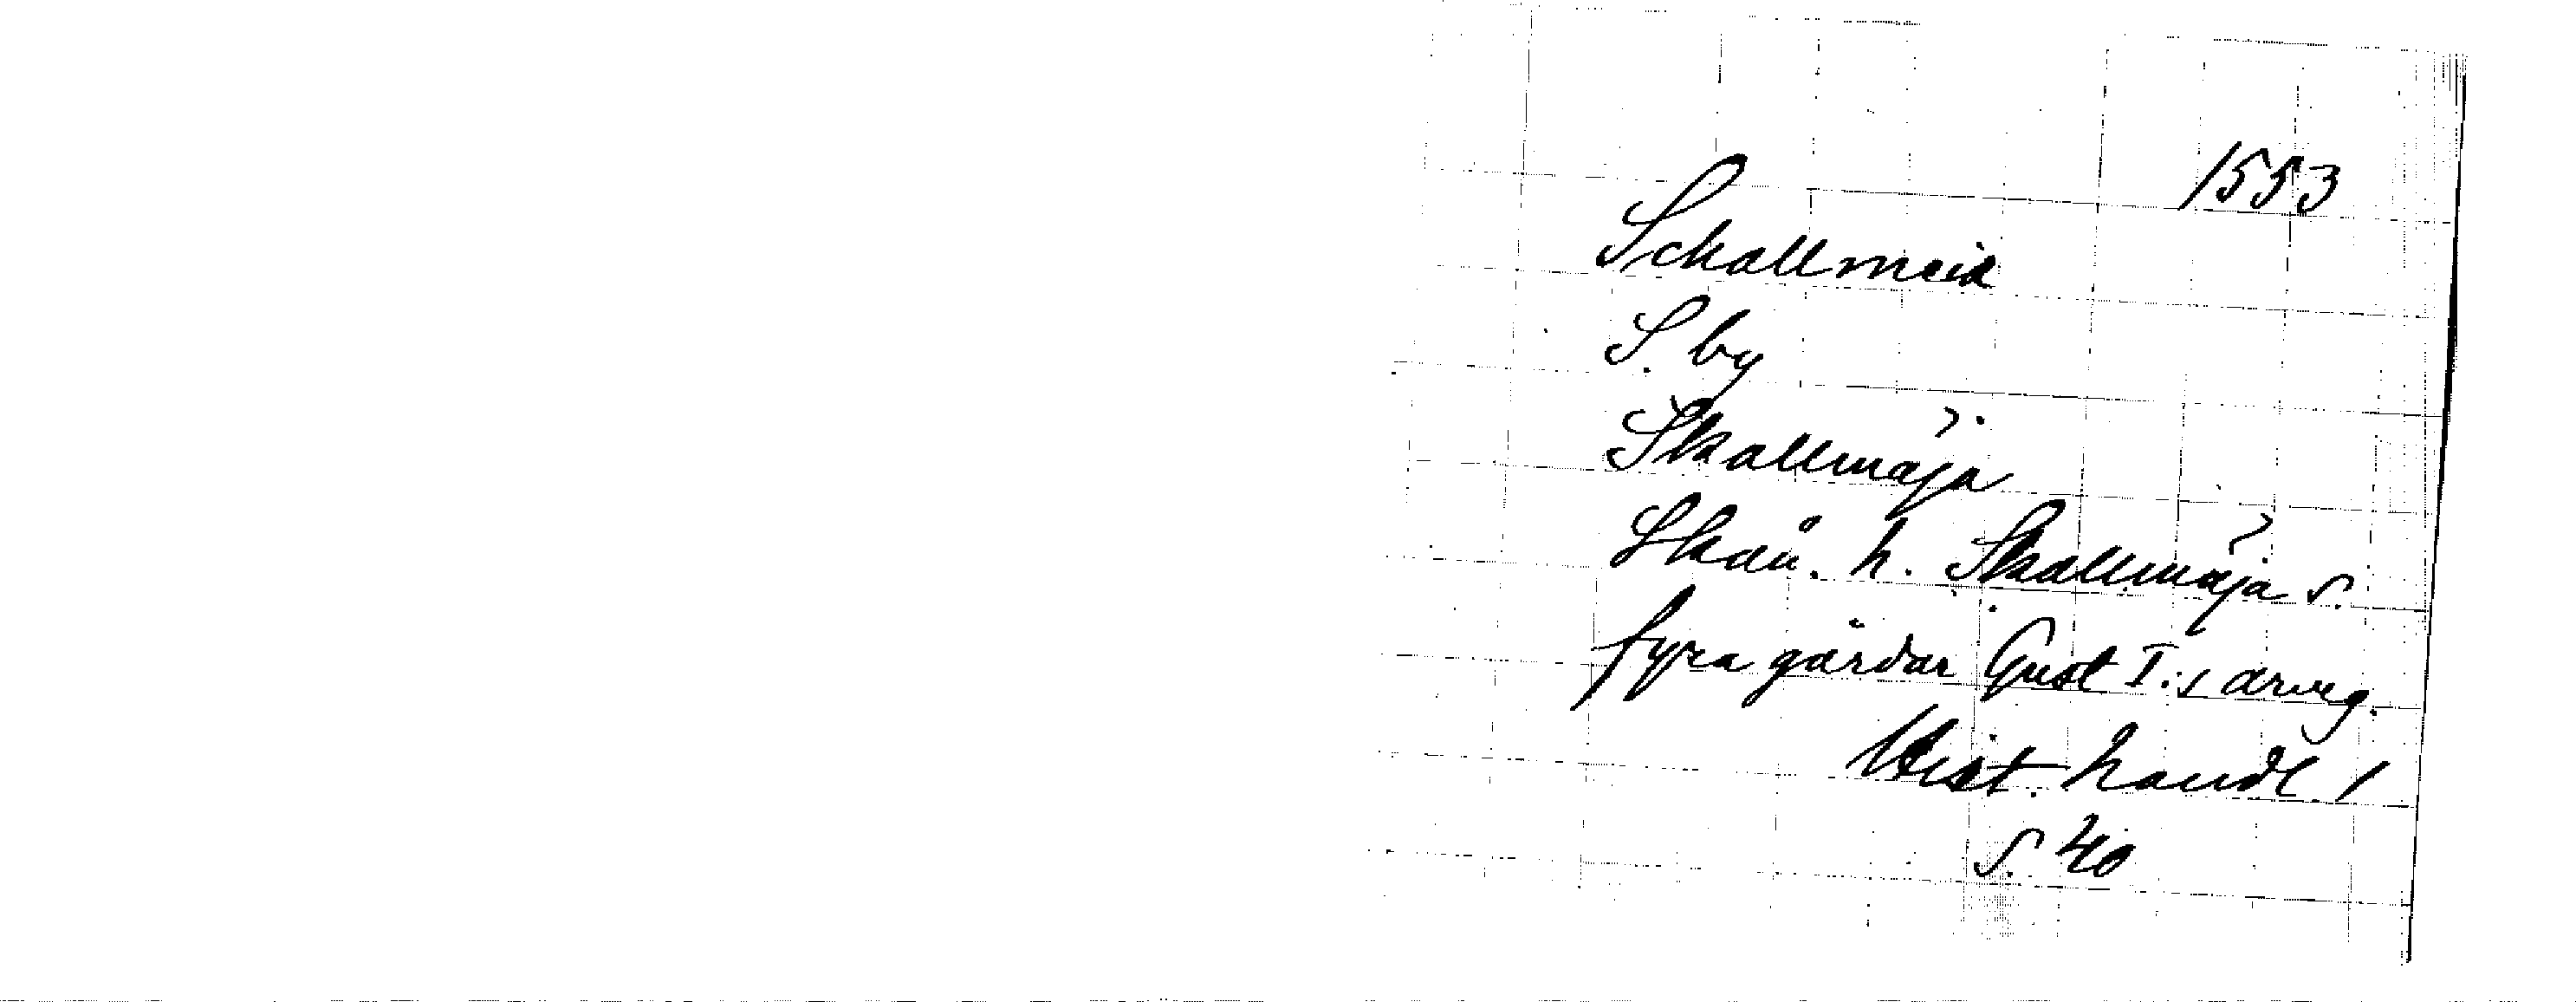 1553
Schallmeid
S. by
Skallmäja
Skån. h. Skallmäja s.
fyra gårdar Gust I:s arveg.
Hist. handl. 1
s. 40